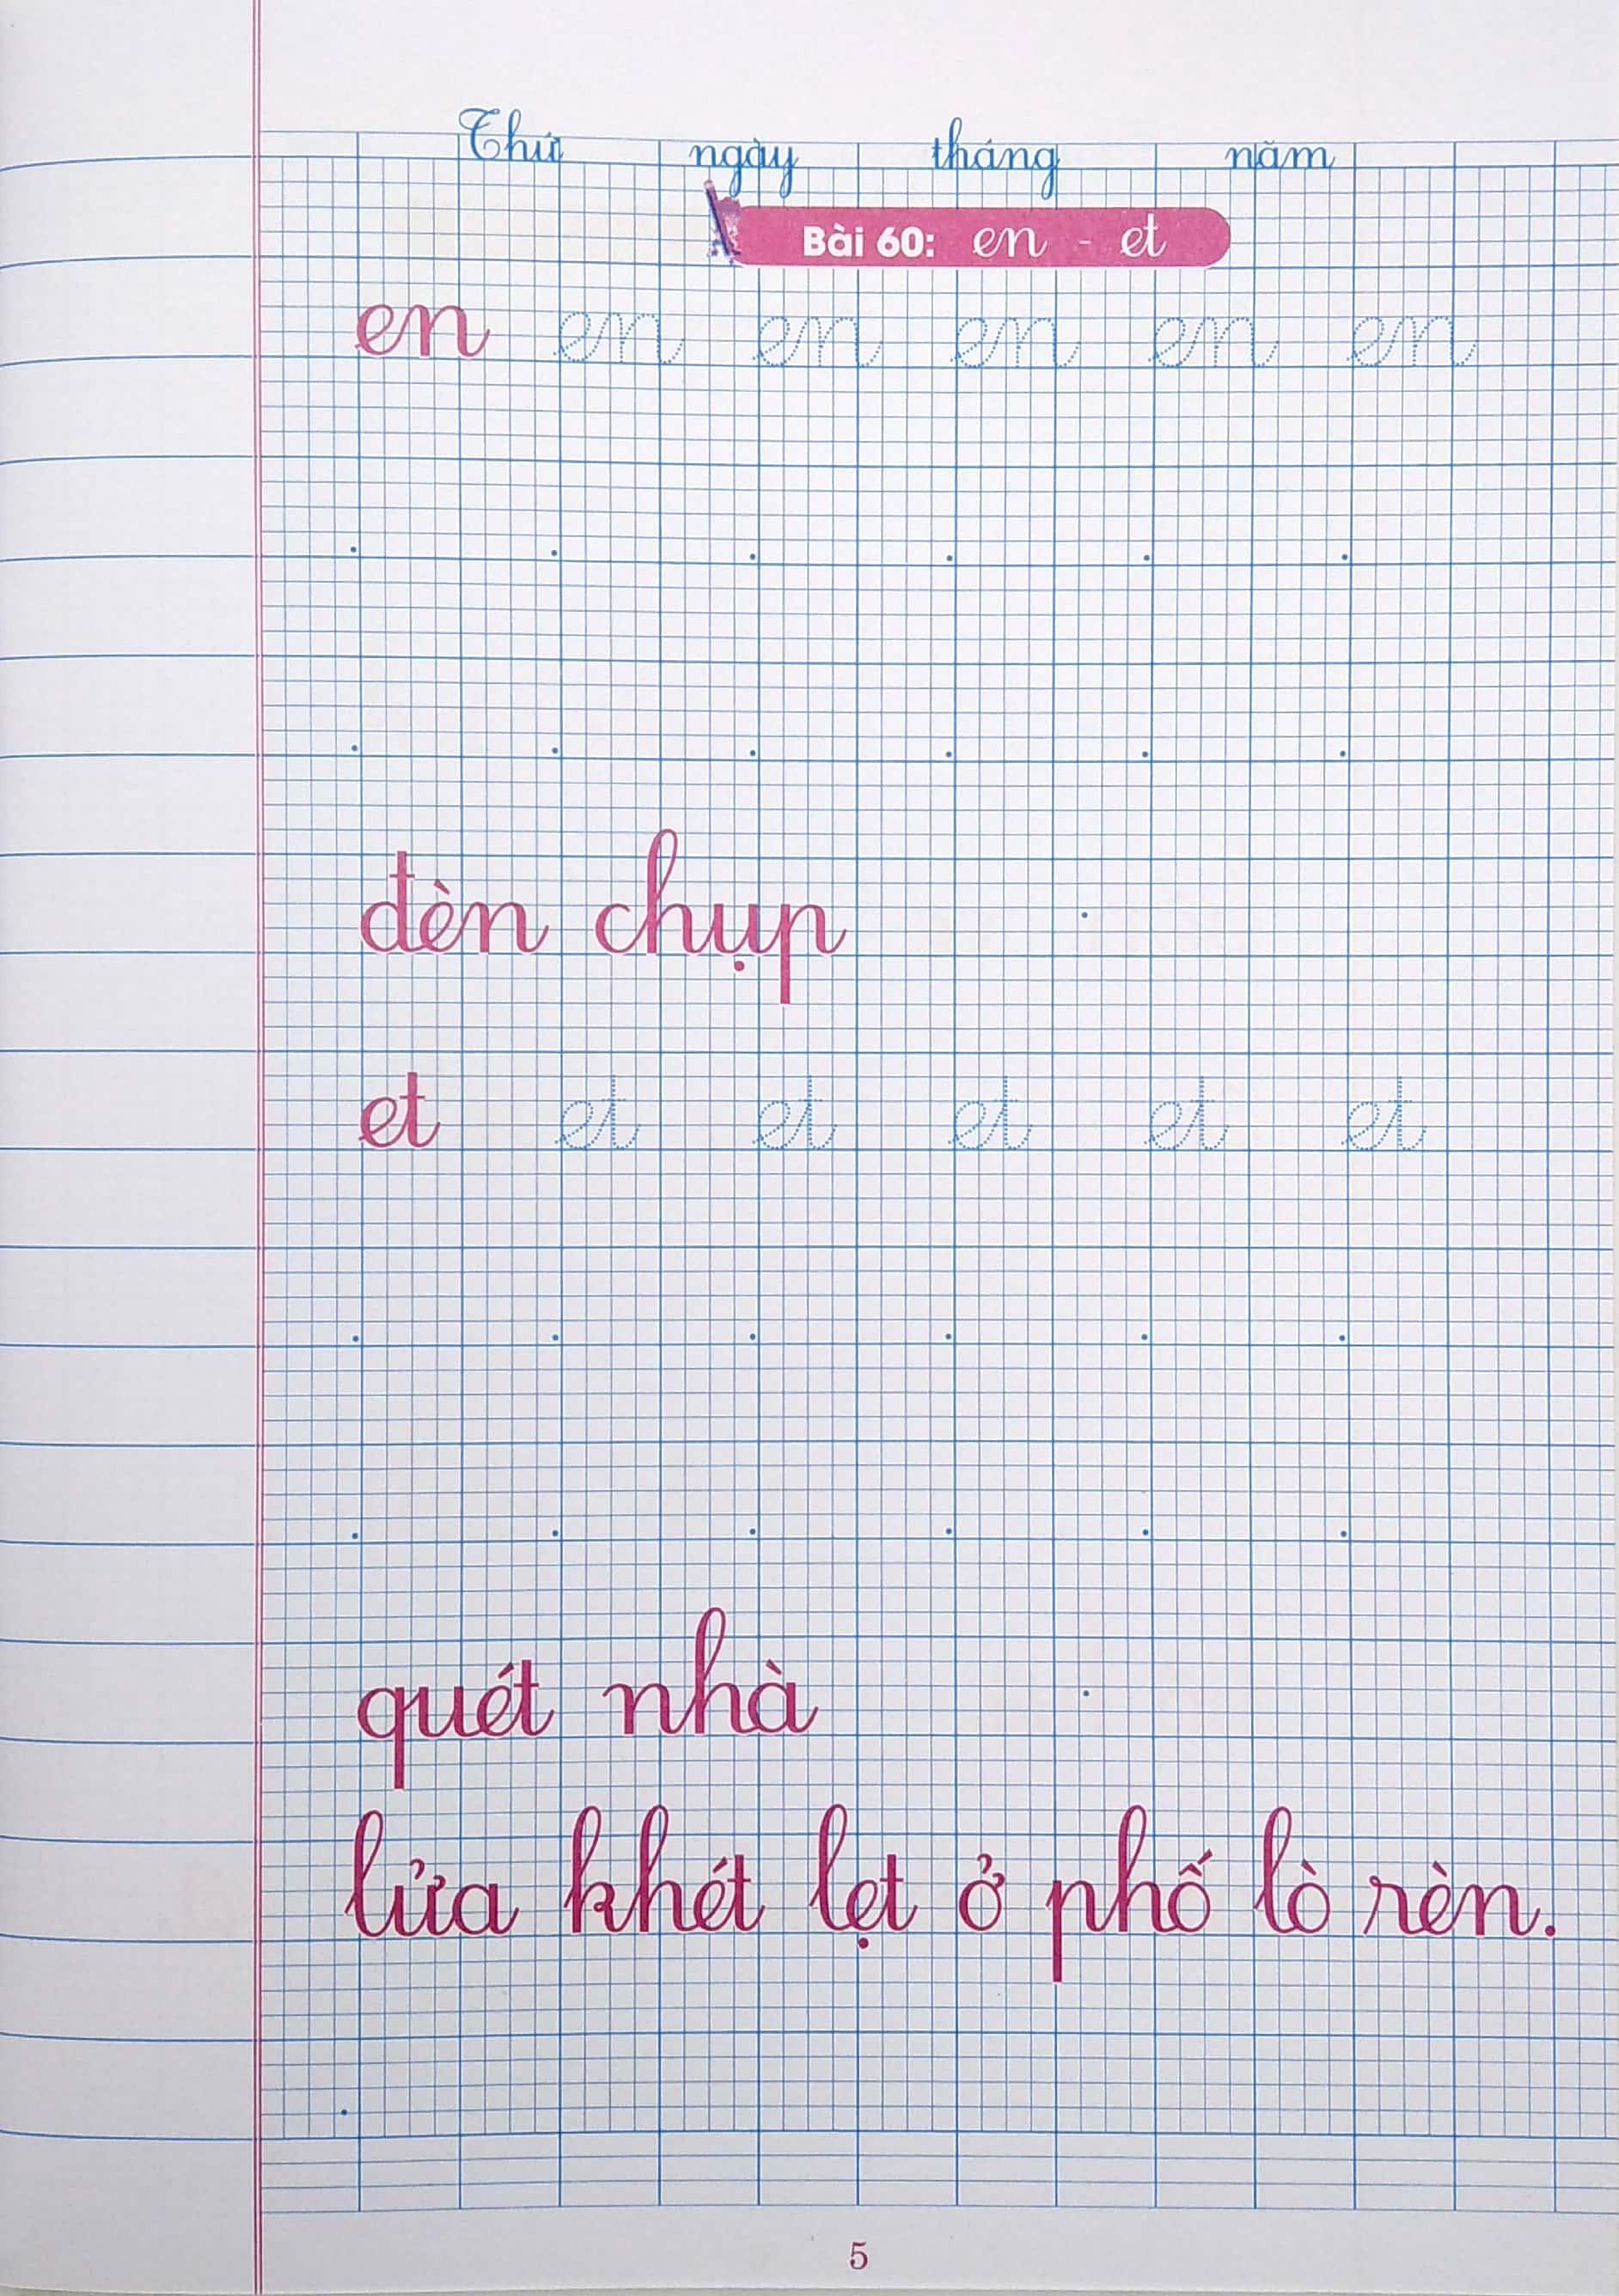 Thứ ngày tháng năm
Bài 60: en - et
en en en en en en
đèn chụp
et et et et et et
quét nhà
lửa khét lẹt ở phố lò rèn.
5